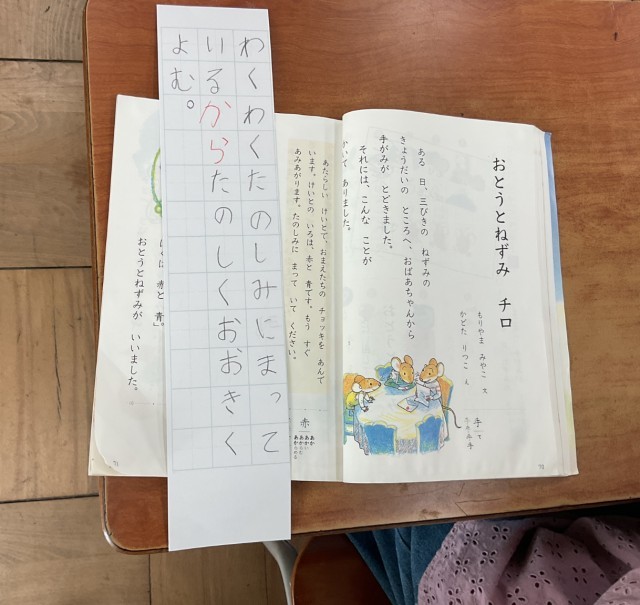 おとうとねずみ チロ
もりやま みやこ 文
かどた りつこ え
ある 日、三びきの ねずみの
きょうだいの ところへ、おばあちゃんから
手がみが とどきました。
それには、こんな ことが
かいて ありました。
手 て
手
73
あたらしい けいとで、おまえたちの チョッキを あんで
います。けいとの いろは、赤と 青です。もう すぐ
あみあがります。たのしみに まって いて ください。
赤
あか
あかい
わくわくたのしみにまって
いるからたのしくおおきく
よむ。
赤と 青」
おとうとねずみが、いいました。